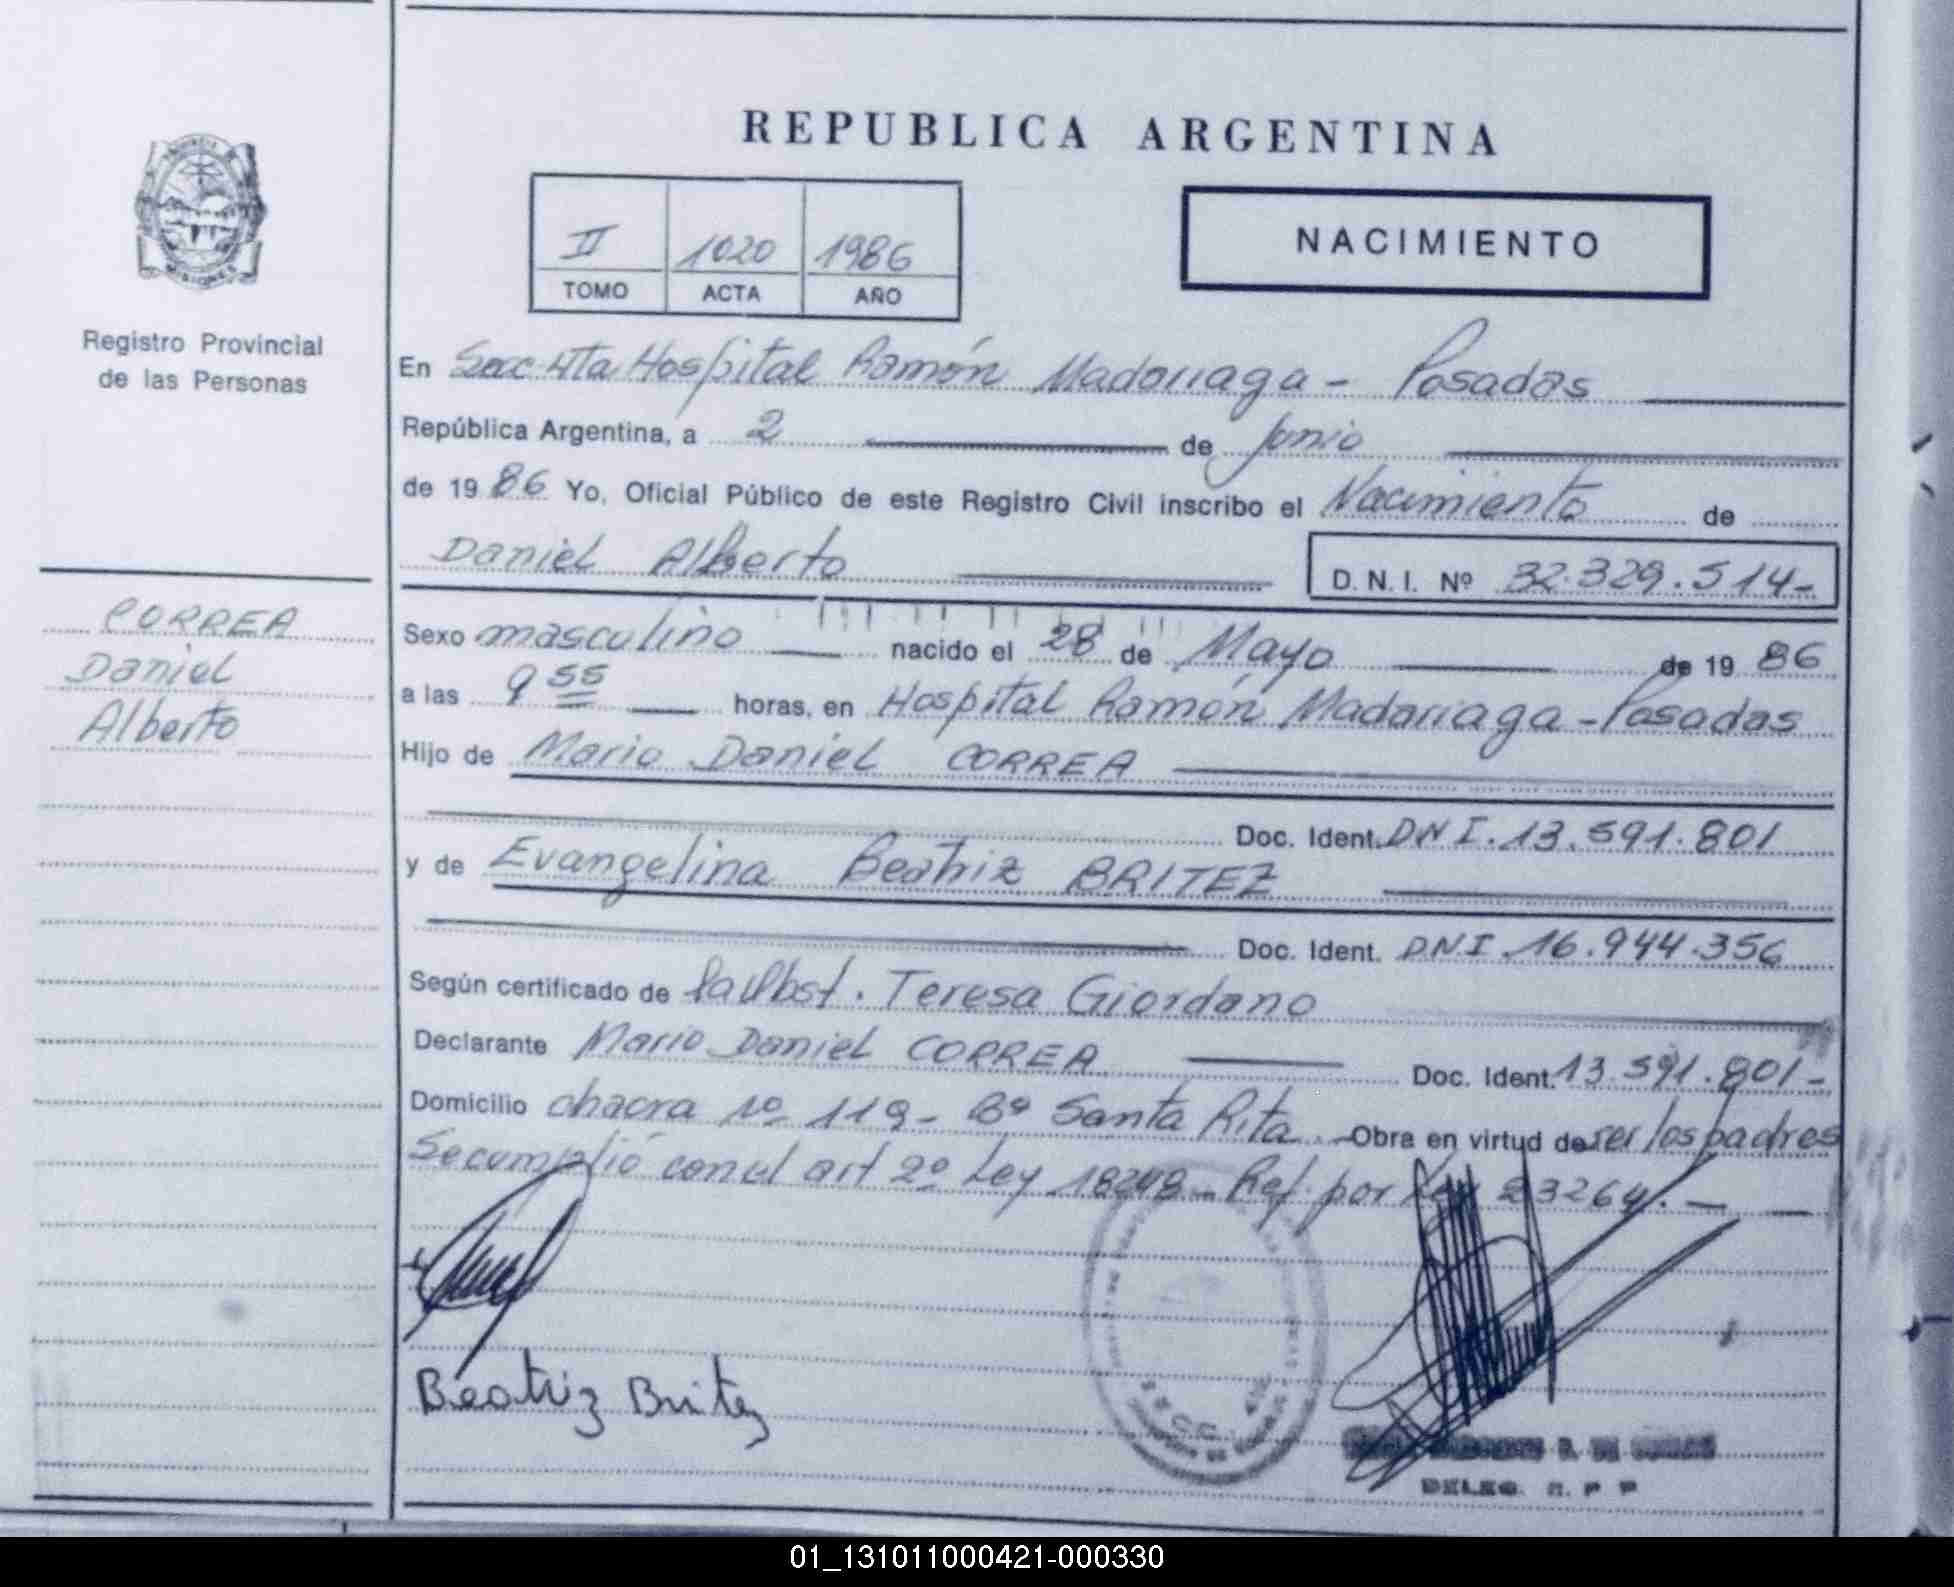 REPUBLICA ARGENTINA
II 1020 1986
TOMO ACTA AÑO
NACIMIENTO
MISIONES
Registro Provincial
de las Personas
CORREA
Daniel
Alberto
En Secc 4ta Hospital Ramón Madariaga - Posadas
República Argentina, a 2 de Junio
de 19 86 Yo, Oficial Público de este Registro Civil inscribo el Nacimiento de
Daniel Alberto D.N.I. Nº 32.329.514-
Sexo masculino nacido el 28 de Mayo de 19 86
a las 9 55 horas, en Hospital Ramón Madariaga - Posadas
Hijo de Mario Daniel CORREA
Doc. Ident. DNI. 13.591.801
y de Evangelina Beatriz BRITEZ
Doc. Ident. DNI. 16.944.356
Según certificado de Obst. Teresa Giordano
Declarante Mario Daniel CORREA Doc. Ident. 13.591.801-
Domicilio chacra nº 119- Bº Santa Rita. - Obra en virtud de ser los padres
Se cumplió con el art 2º Ley 18248 - Ref. por Ley 23264. -
Beatriz Britez
DELEG. R. P. P
01_131011000421-000330